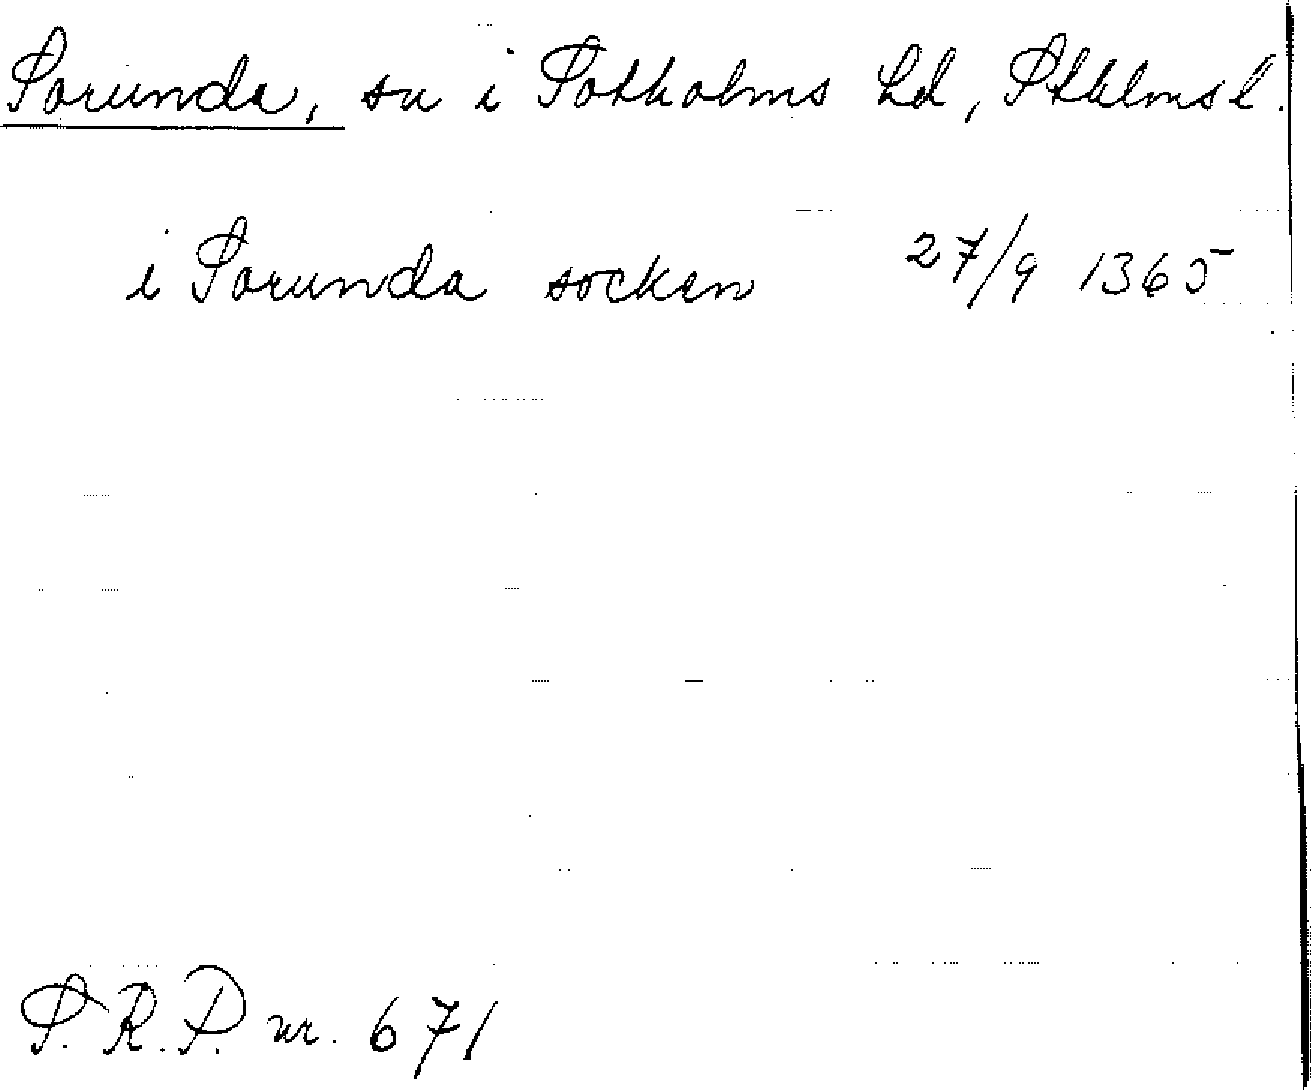 Sorunda, sn i Sotholms hd, Sthlms l.
i Sorunda socken 27/9 1365
S.R.P. nr. 671